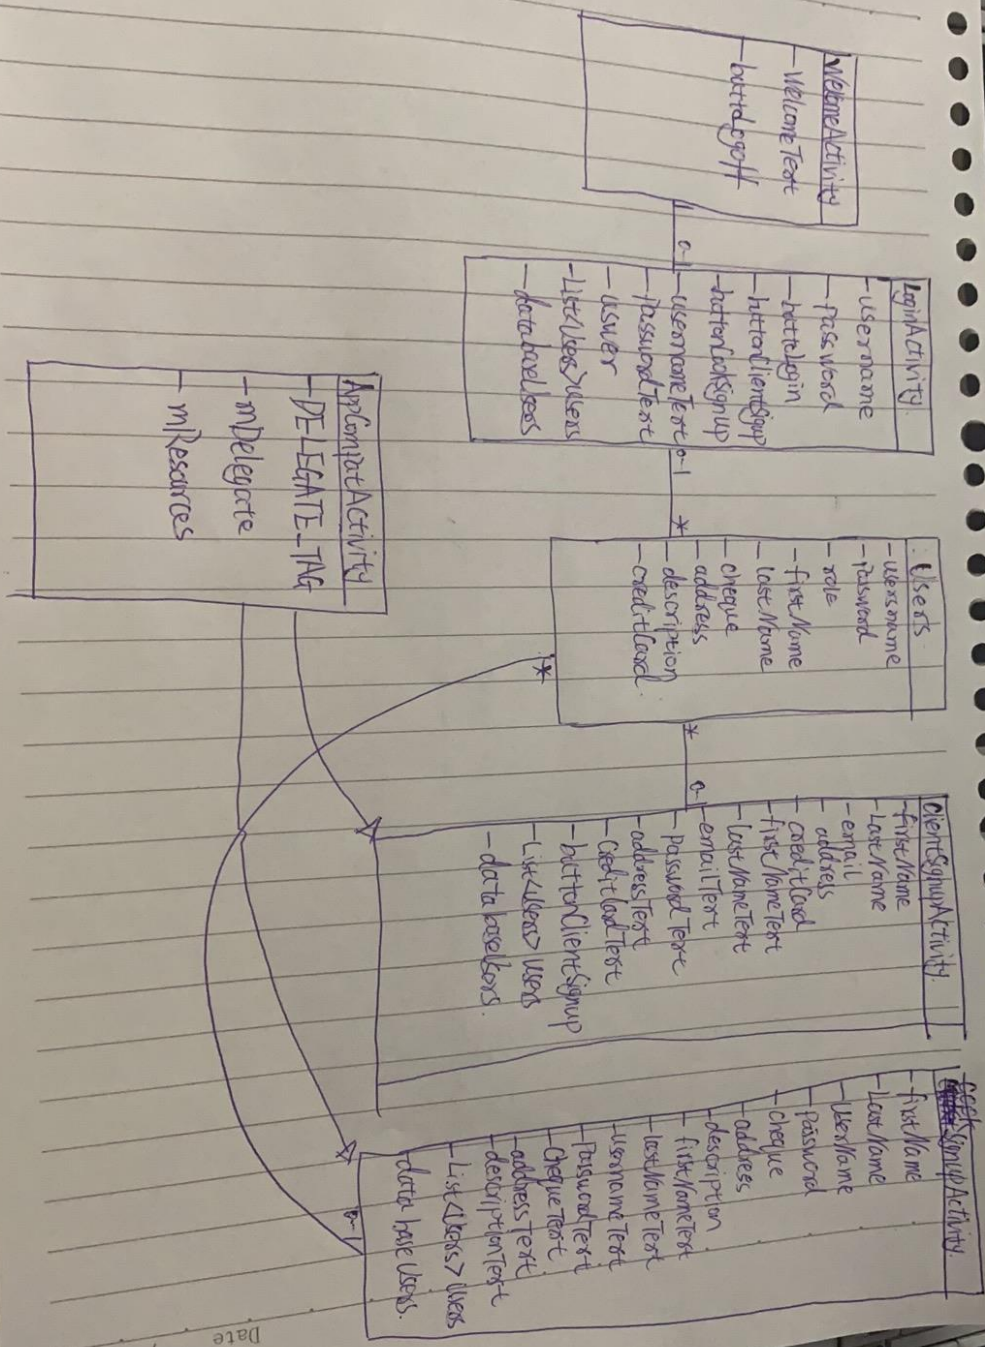 WelcomeActivity
- WelcomeText
- buttoLogoff
0-1
LoginActivity.
- username
- Password
- buttoLogin
- buttonClientSignup
- buttonCookSignup
- usernameText
- PasswordText
- usuer
- List<Users>users
- databaseUsers
0-1
*
Users
- username
- Password
- role
- firstName
- lastName
- cheque
- address
- description
- creditCard.
*
*
0-1
ClientSignupActivity.
- firstName
- LastName
- email
- address
- creditCard
- firstNameText
- lastNameText
- emailText
- PasswordText
- addressText
- CreditCardText
- buttonClientSignup
- List<Users> users
- databaseUsers.
SignupActivity.
- firstName
- LastName
- UserName
- Password
- Cheque
- address
- description
- firstNameText
- lastNameText
- usernameText
- PasswordText
- ChequeText
- addressText
- descriptionText
- List<Users> users
- databaseUsers.
0-1
AppCompatActivity
- DELEGATE_TAG
- mDelegate
- mResources
Date